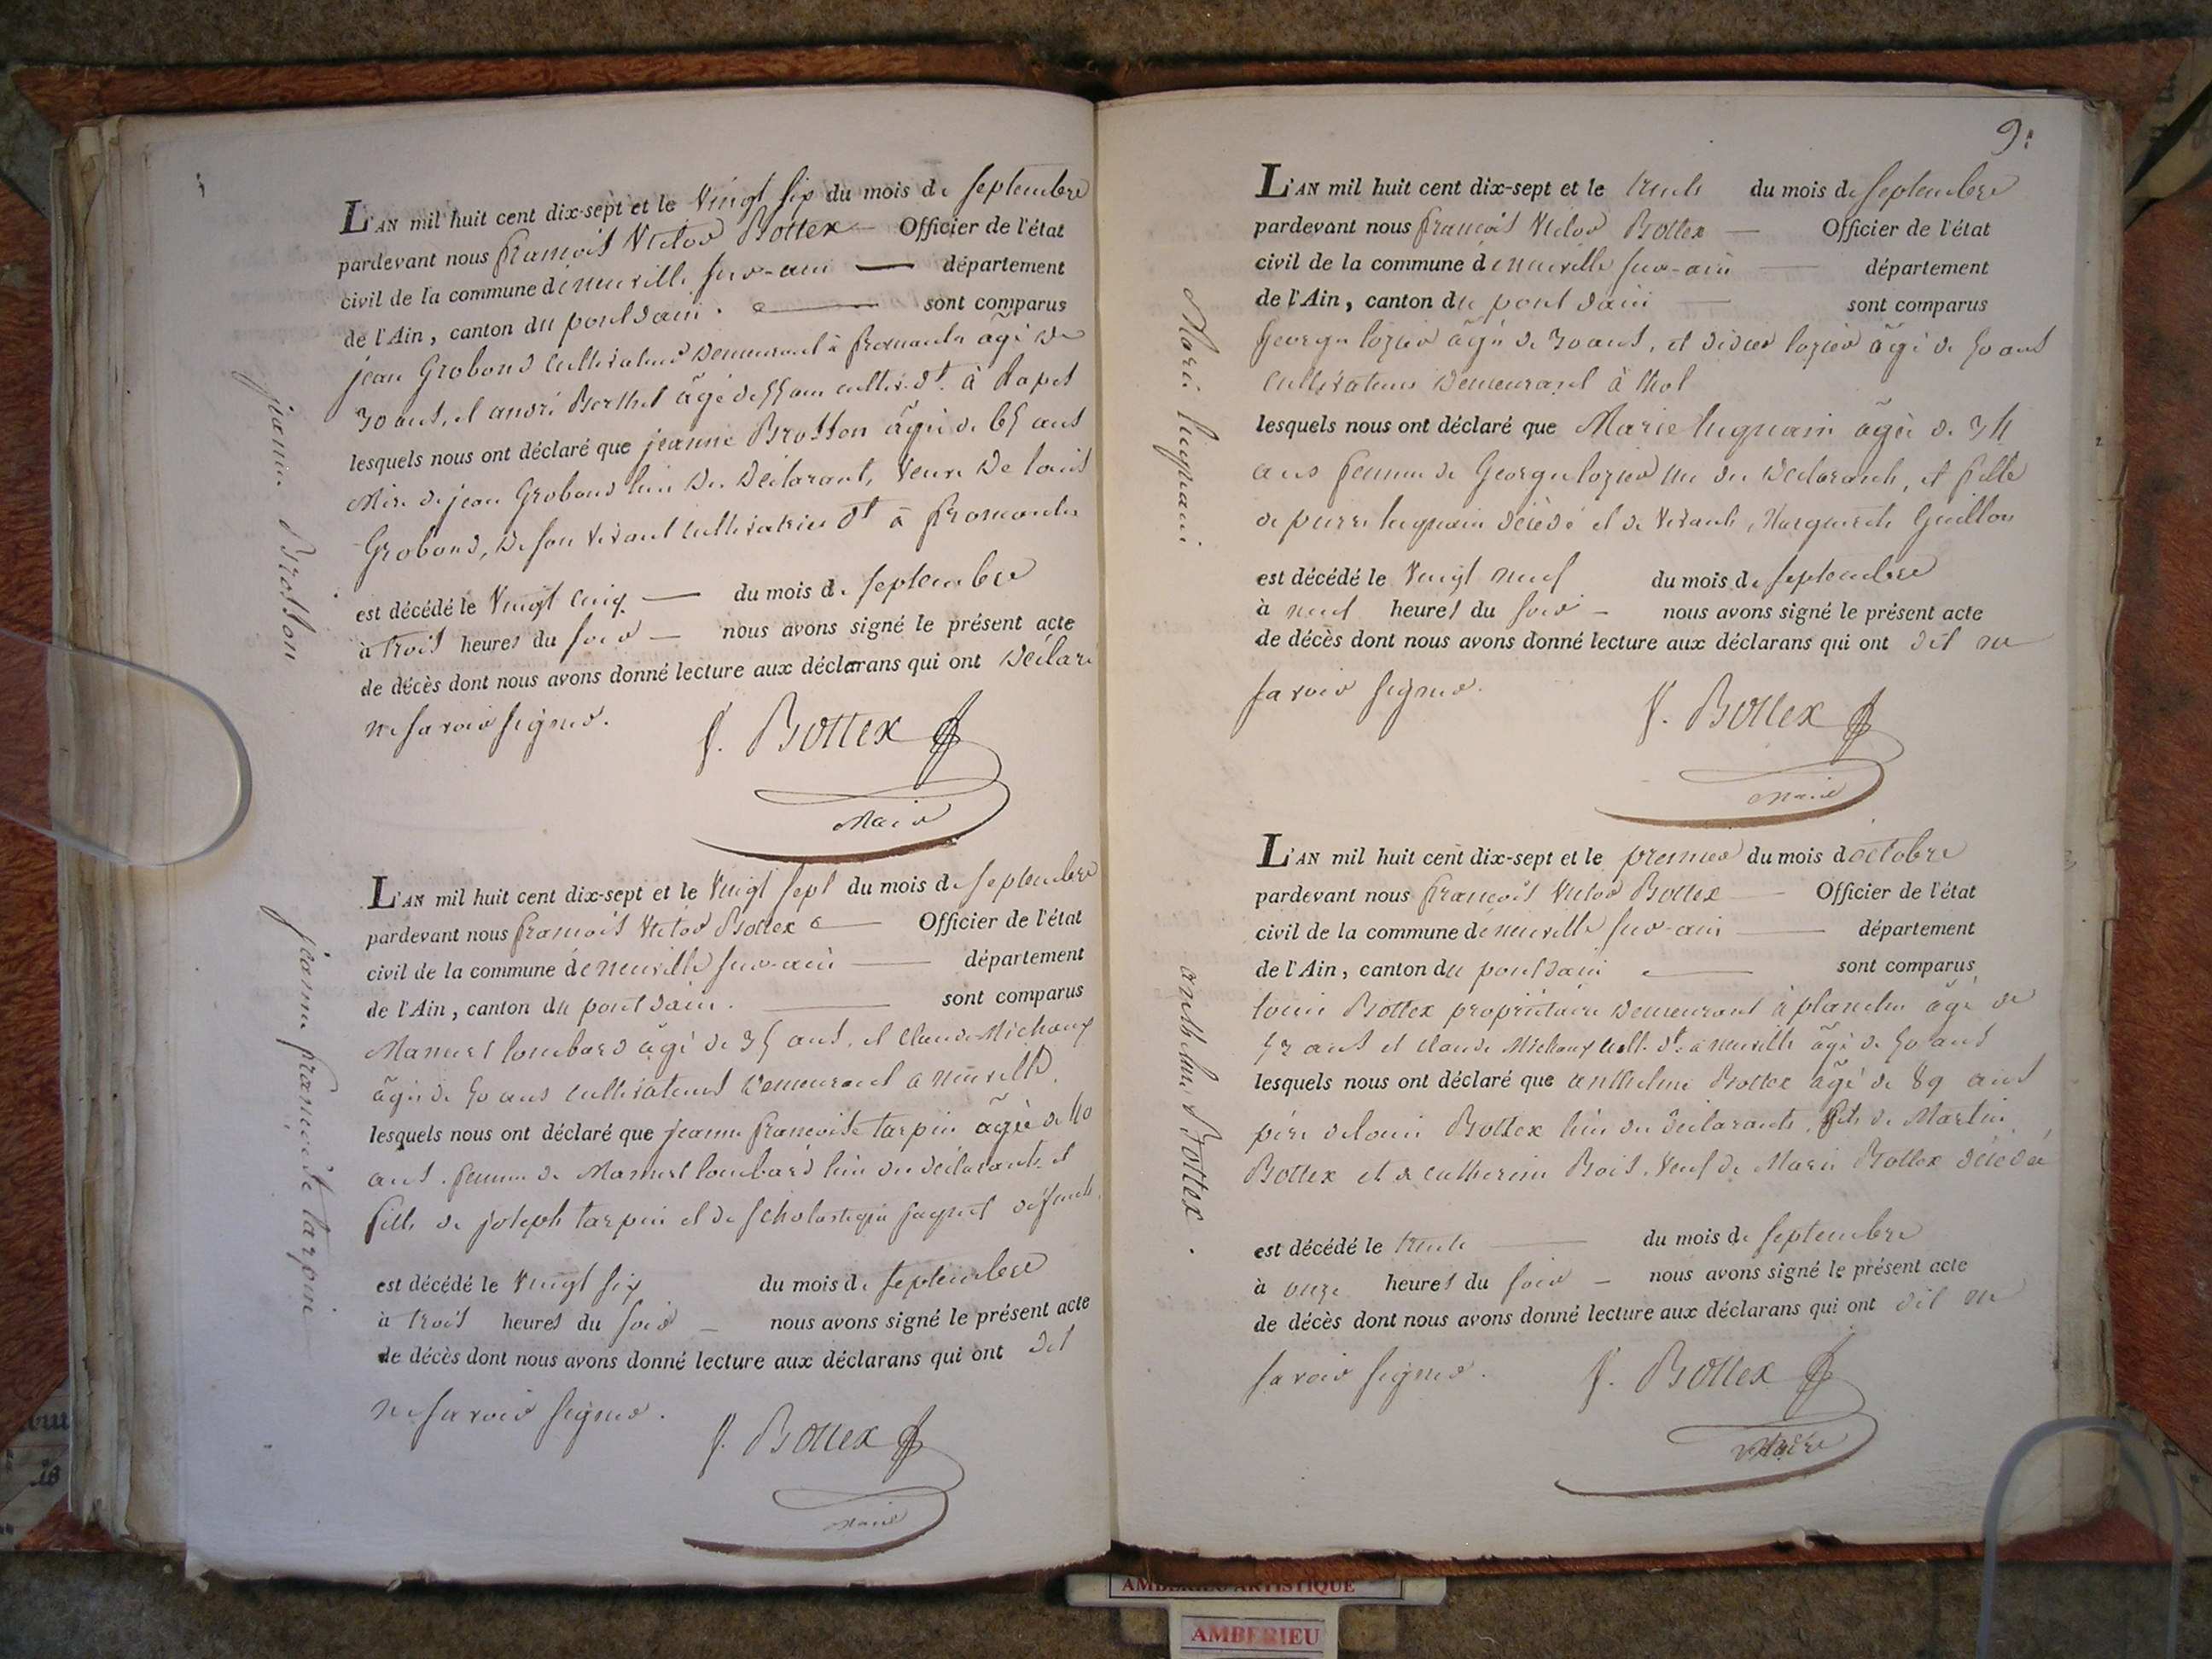 L'AN mil huit cent dix-sept et le vingt six du mois de septembre
pardevant nous francois victor Bottex — Officier de l'état
civil de la commune de neuville sur-ain — département
de l'Ain, canton du pont dain. — sont comparus
jean Grobond cultivateur demeurant à fromente agé de
30 ans, et andré Berthet agé de 55 ans cultiv. dt. à Rapet
lesquels nous ont déclaré que jeanne Brosson agée de 65 ans
Mère de jean Grobond l'un des déclarant, veuve de louis
Grobond, de son vivant cultivatrice dt à fromente
est décédé le vingt cinq — du mois de septembre
à trois heures du soir — nous avons signé le présent acte
de décès dont nous avons donné lecture aux déclarans qui ont déclaré
ne savoir signer.
v. Bottex
Maire
jeanne Brosson
L'AN mil huit cent dix-sept et le vingt sept du mois de septembre
pardevant nous francois victor Bottex — Officier de l'état
civil de la commune de neuville sur-ain — département
de l'Ain, canton du pont dain. — sont comparus
Manuel lombard agé de 35 ans, et Claude Michaux
agée de 50 ans cultivateurs demeurant a neuville.
lesquels nous ont déclaré que jeanne francoise tarpin agée de 40
ans. femme de Manuel lombard l'un des déclarants et
fille de joseph tarpin et de scholastique défunts.
est décédé le vingt six du mois de septembre
à trois heures du soir — nous avons signé le présent acte
de décès dont nous avons donné lecture aux déclarans qui ont dit
ne savoir signer.
v. Bottex
Maire
jeanne francoise tarpin
9:
L'AN mil huit cent dix-sept et le trente du mois de septembre
pardevant nous francois victor Bottex — Officier de l'état
civil de la commune de neuville sur-ain — département
de l'Ain, canton du pont dain — sont comparus
George lozier agée de 30 ans, et didier lozier agé de 50 ans
cultivateurs demeurant à thol
lesquels nous ont déclaré que Marie hugnain agée de 34
ans femme de George lozier un des déclarants, et fille
de pierre hugnain décédé et de vivante, Marguerite Guillon
est décédé le vingt neuf du mois de septembre
à neuf heures du soir — nous avons signé le présent acte
de décès dont nous avons donné lecture aux déclarans qui ont dit ne
savoir signer.
v. Bottex
Maire
Marie hugnain
L'AN mil huit cent dix-sept et le premier du mois doctobre
pardevant nous francois victor Bottex — Officier de l'état
civil de la commune de neuville sur-ain — département
de l'Ain, canton du pont dain — sont comparus
louis Bottex propriétaire demeurant à planche agé de
52 ans et claude Michaux cult. dt. a neuville agé de 50 ans
lesquels nous ont déclaré que anthelme Bottex agé de 89 ans
père de louis Bottex l'un des déclarants, fils de Martin
Bottex et de catherine Bois, veuf de Marie Bottex décédée
est décédé le trente — du mois de septembre
à onze heures du soir — nous avons signé le présent acte
de décès dont nous avons donné lecture aux déclarans qui ont dit ne
savoir signer.
v. Bottex
Maire
anthelme Bottex.
AMBERIEU ARTISTIQUE
AMBERIEU